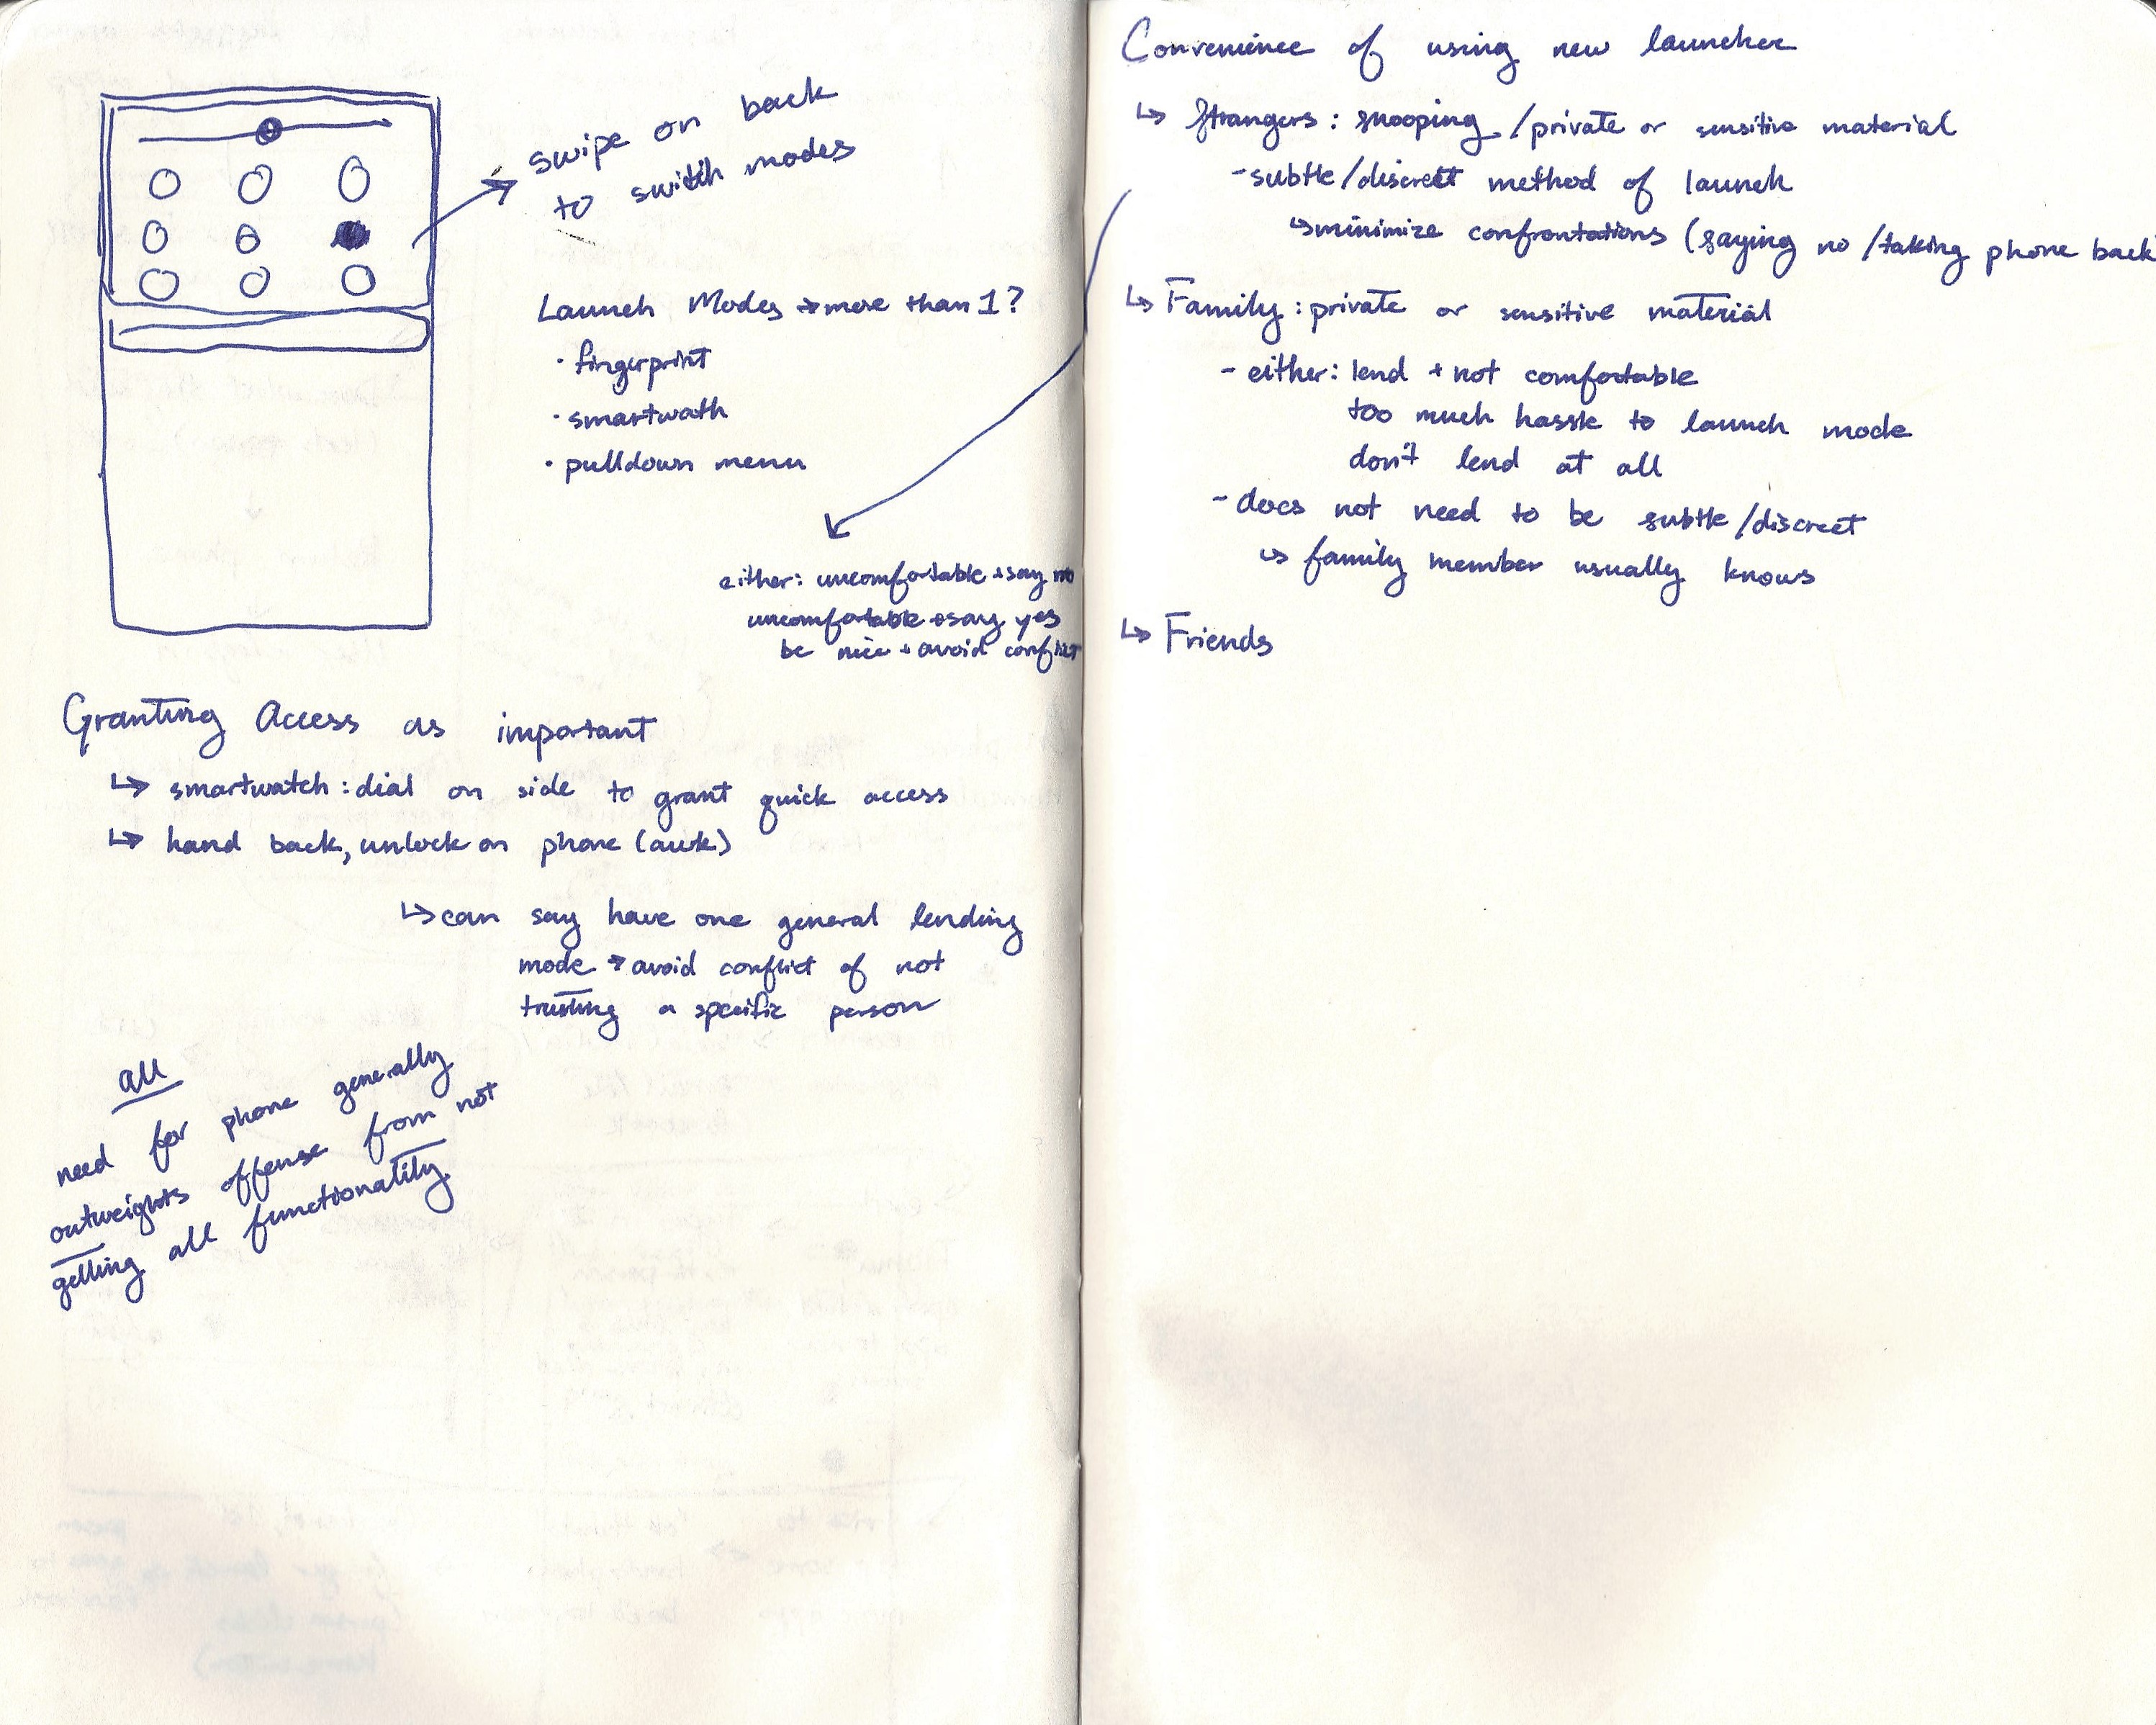 swipe on back
to switch modes
Launch Modes → more than 1?
· fingerprint
· smartwath
· pulldown menu
either: uncomfortable + say no
uncomfortable + say yes
be nice + avoid conflict
Granting Access as important
↳ smartwatch: dial on side to grant quick access
↳ hand back, unlock on phone (awk)
↳ can say have one general lending
mode → avoid conflict of not
trusting a specific person
all
need for phone generally
outweights offense from not
getting all functionality
Convenience of using new launcher
↳ Strangers: snooping/private or sensitive material
- subtle/discreet method of launch
↳ minimize confrontations (saying no/taking phone back
↳ Family: private or sensitive material
- either: lend + not comfortable
too much hassle to launch mode
don't lend at all
- does not need to be subtle/discreet
↳ family member usually knows
↳ Friends